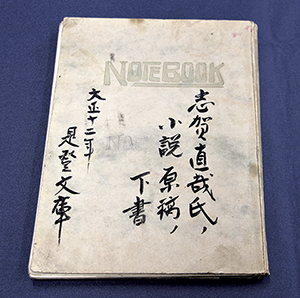 NOTEBOOK
志賀直哉氏ノ
小説原稿ノ
下書
No
大正十二年
是登文庫